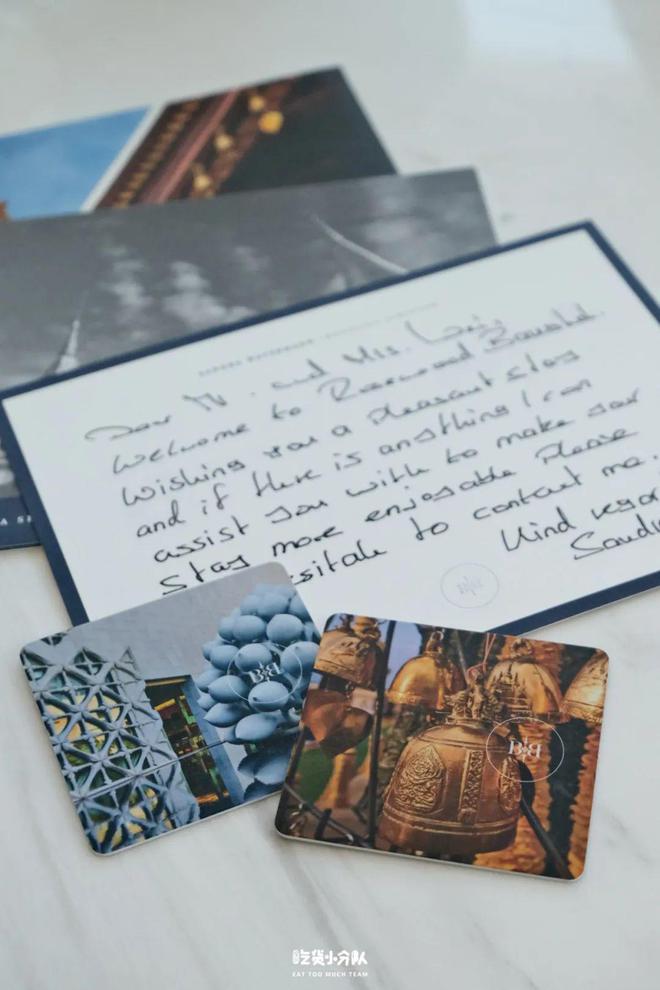 Dear Mr. and Mrs.
Welcome to Rosewood Bangkok.
Wishing you a pleasant stay
and if there is anything I can
assist you with to make your
stay more enjoyable please
hesitate to contact me.
Kind regar
Sandr
BB
BB
A S
吃货小分队
EAT TOO MUCH TEAM